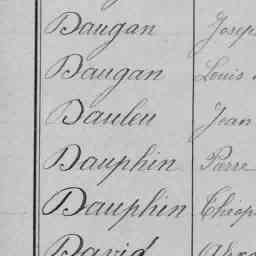 Daugan Josep
Daugan Louis
Dauleu Jean
Dauphin Pierre
Dauphin Théop
David